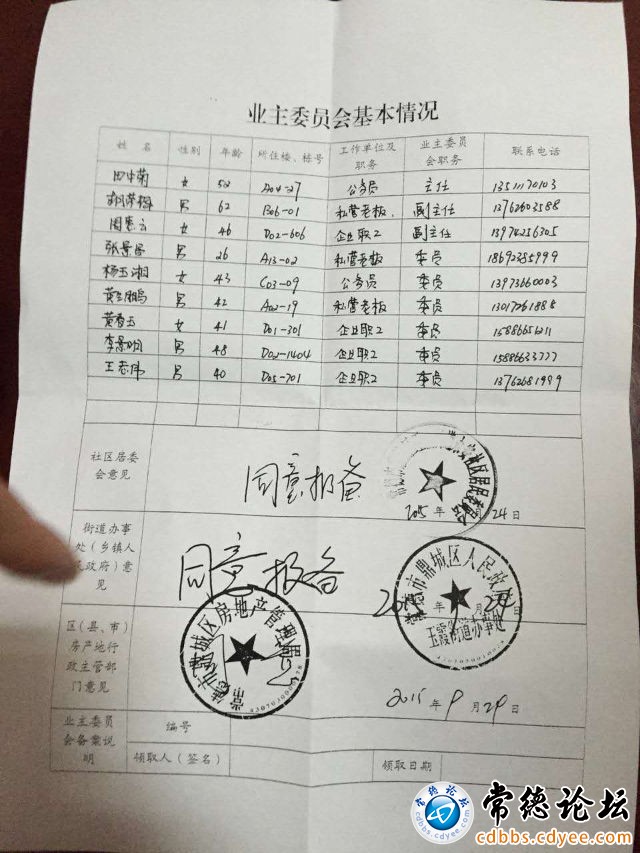 业主委员会基本情况
姓 名 性别 年龄 所住楼、栋号 工作单位及职务 业主委员会职务 联系电话
田中菊 女 52 A04-27 公务员 主任 13511170103
男 62 B06-01 私营老板. 副主任 13762603588
周惠云 女 46 D02-606 企业职工 副主任 13974256305
张景昌 男 26 A13-02 私营老板 委员 18692285999
杨玉湘 女 43 C03-09 公务员 委员 13973660003
男 42 私营老板 委员 13017261888
黄香玉 女 41 D01-301 企业职工 委员
李景明 男 48 D02-1404 企业职工 委员 15886633777
王志伟 男 40 D05-701 企业职工 委员 13762681999
社区居委
会意见
同意报备
2015 年 月 24 日
街道办事
处（乡镇人
民政府）意
见
同意报备
常德市鼎城区人民政府
玉霞街道办事处
2015 年 月 日
区（县、市）
房产地行
政主管部
门意见
常德市鼎城区房地产管理局
2015 年 9 月 29 日
业主委员
会备案说
明
编号
领取人（签名）
领取日期
常德论坛
cdbbs.cdyee.com